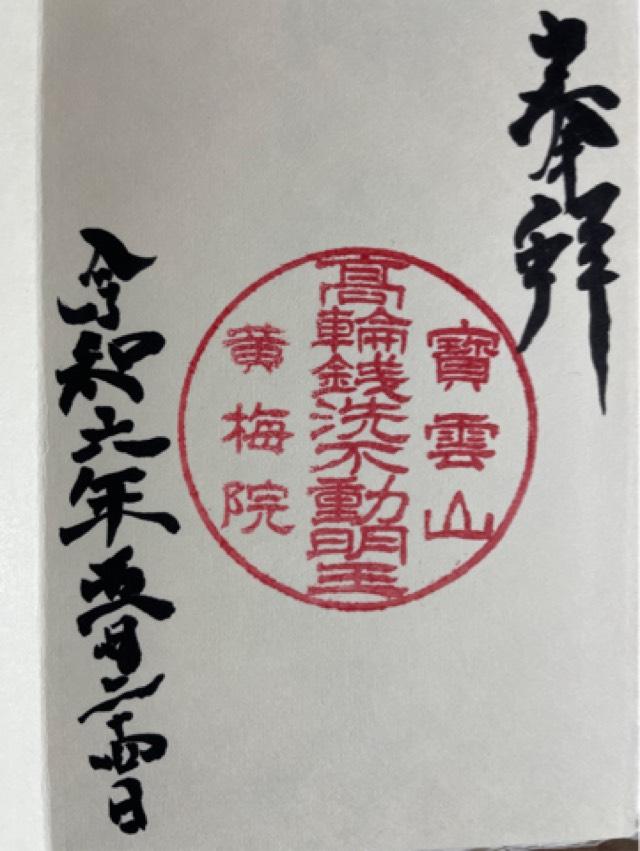 奉拝
寶雲山
髙輪銭洗不動明王
黄梅院
令和六年 月二十 日